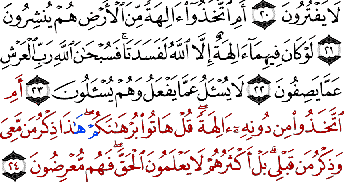 لَا يَفْتُرُونَ ﴿٢٠﴾ أَمِ ٱتَّخَذُوٓا۟ ءَالِهَةً مِّنَ ٱلْأَرْضِ هُمْ يُنشِرُونَ
﴿٢١﴾ لَوْ كَانَ فِيهِمَآ ءَالِهَةٌ إِلَّا ٱللَّهُ لَفَسَدَتَا ۚ فَسُبْحَٰنَ ٱللَّهِ رَبِّ ٱلْعَرْشِ
عَمَّا يَصِفُونَ ﴿٢٢﴾ لَا يُسْـَٔلُ عَمَّا يَفْعَلُ وَهُمْ يُسْـَٔلُونَ ﴿٢٣﴾ أَمِ
ٱتَّخَذُوا۟ مِن دُونِهِۦٓ ءَالِهَةً ۖ قُلْ هَاتُوا۟ بُرْهَٰنَكُمْ ۖ هَٰذَا ذِكْرُ مَن مَّعِىَ
وَذِكْرُ مَن قَبْلِى ۗ بَلْ أَكْثَرُهُمْ لَا يَعْلَمُونَ ٱلْحَقَّ ۖ فَهُم مُّعْرِضُونَ ﴿٢٤﴾